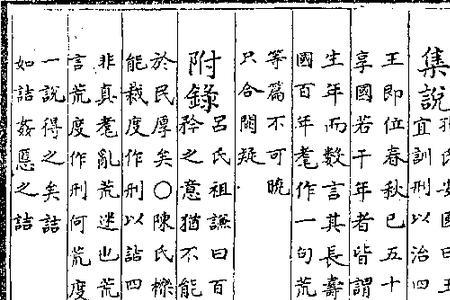 集說孔氏安國曰
宜訓刑以治四
王即位春秋已五十
享國若干年者皆謂
生年而數言其長壽
國百年耄作一句荒
等篇不可曉
只合闕疑
附錄呂氏祖謙曰百
矜之意猶不能
於民厚矣○陳氏櫟
能裁度作刑以詰四
非真耄亂荒迷也荒
言荒度作刑何荒度
一說得之矣詰
如詰姦慝之詰